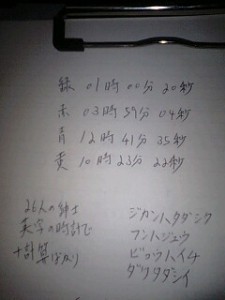 緑 01時00分20秒
赤 03時59分04秒
青 12時41分35秒
黄 10時23分22秒
26人の紳士
英字の時計で
十計算ばかり
ジカントタダシク
フントジュウ
ビョウトイチ
ダケタダシイ